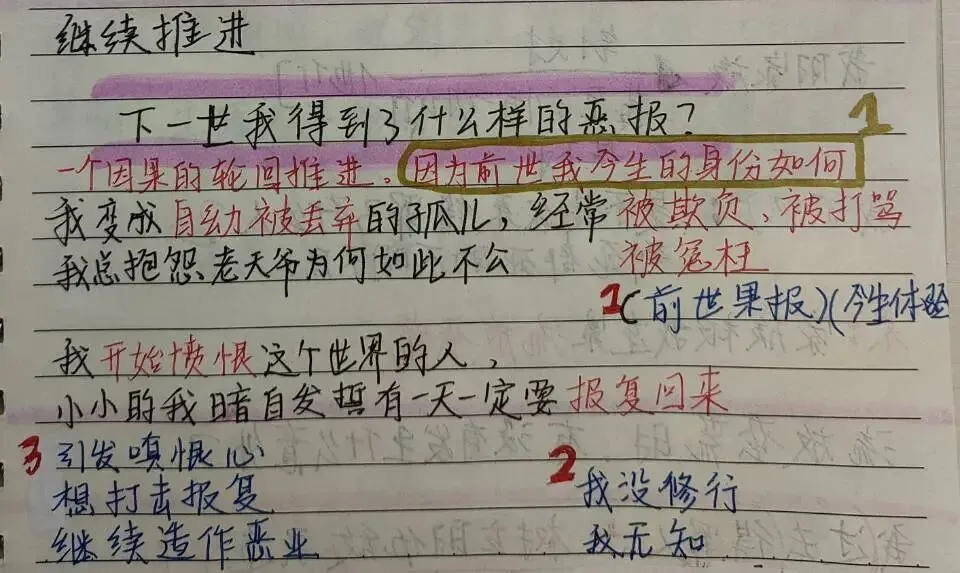 继续推进
下一世我得到了什么样的恶报？
1
一个因果的轮回推进。因为前世我今生的身份如何
我变成自幼被丢弃的孤儿，经常被欺负、被打骂
我总抱怨老天爷为何如此不公 被冤枉
1（前世果报）（今生体验
我开始愤恨这个世界的人，
小小的我暗自发誓有一天一定要报复回来
3 引发嗔恨心
想打击报复
继续造作恶业
2
我没修行
我无知